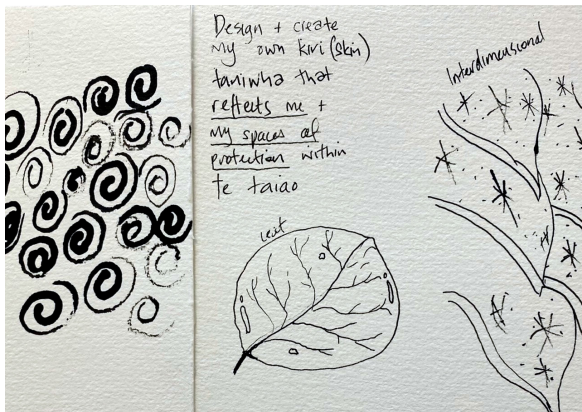 Design + create
my own kiri (skin)
taniwha that
reflects me +
my spaces of
protection within
te taiao
Interdimensional
leaf